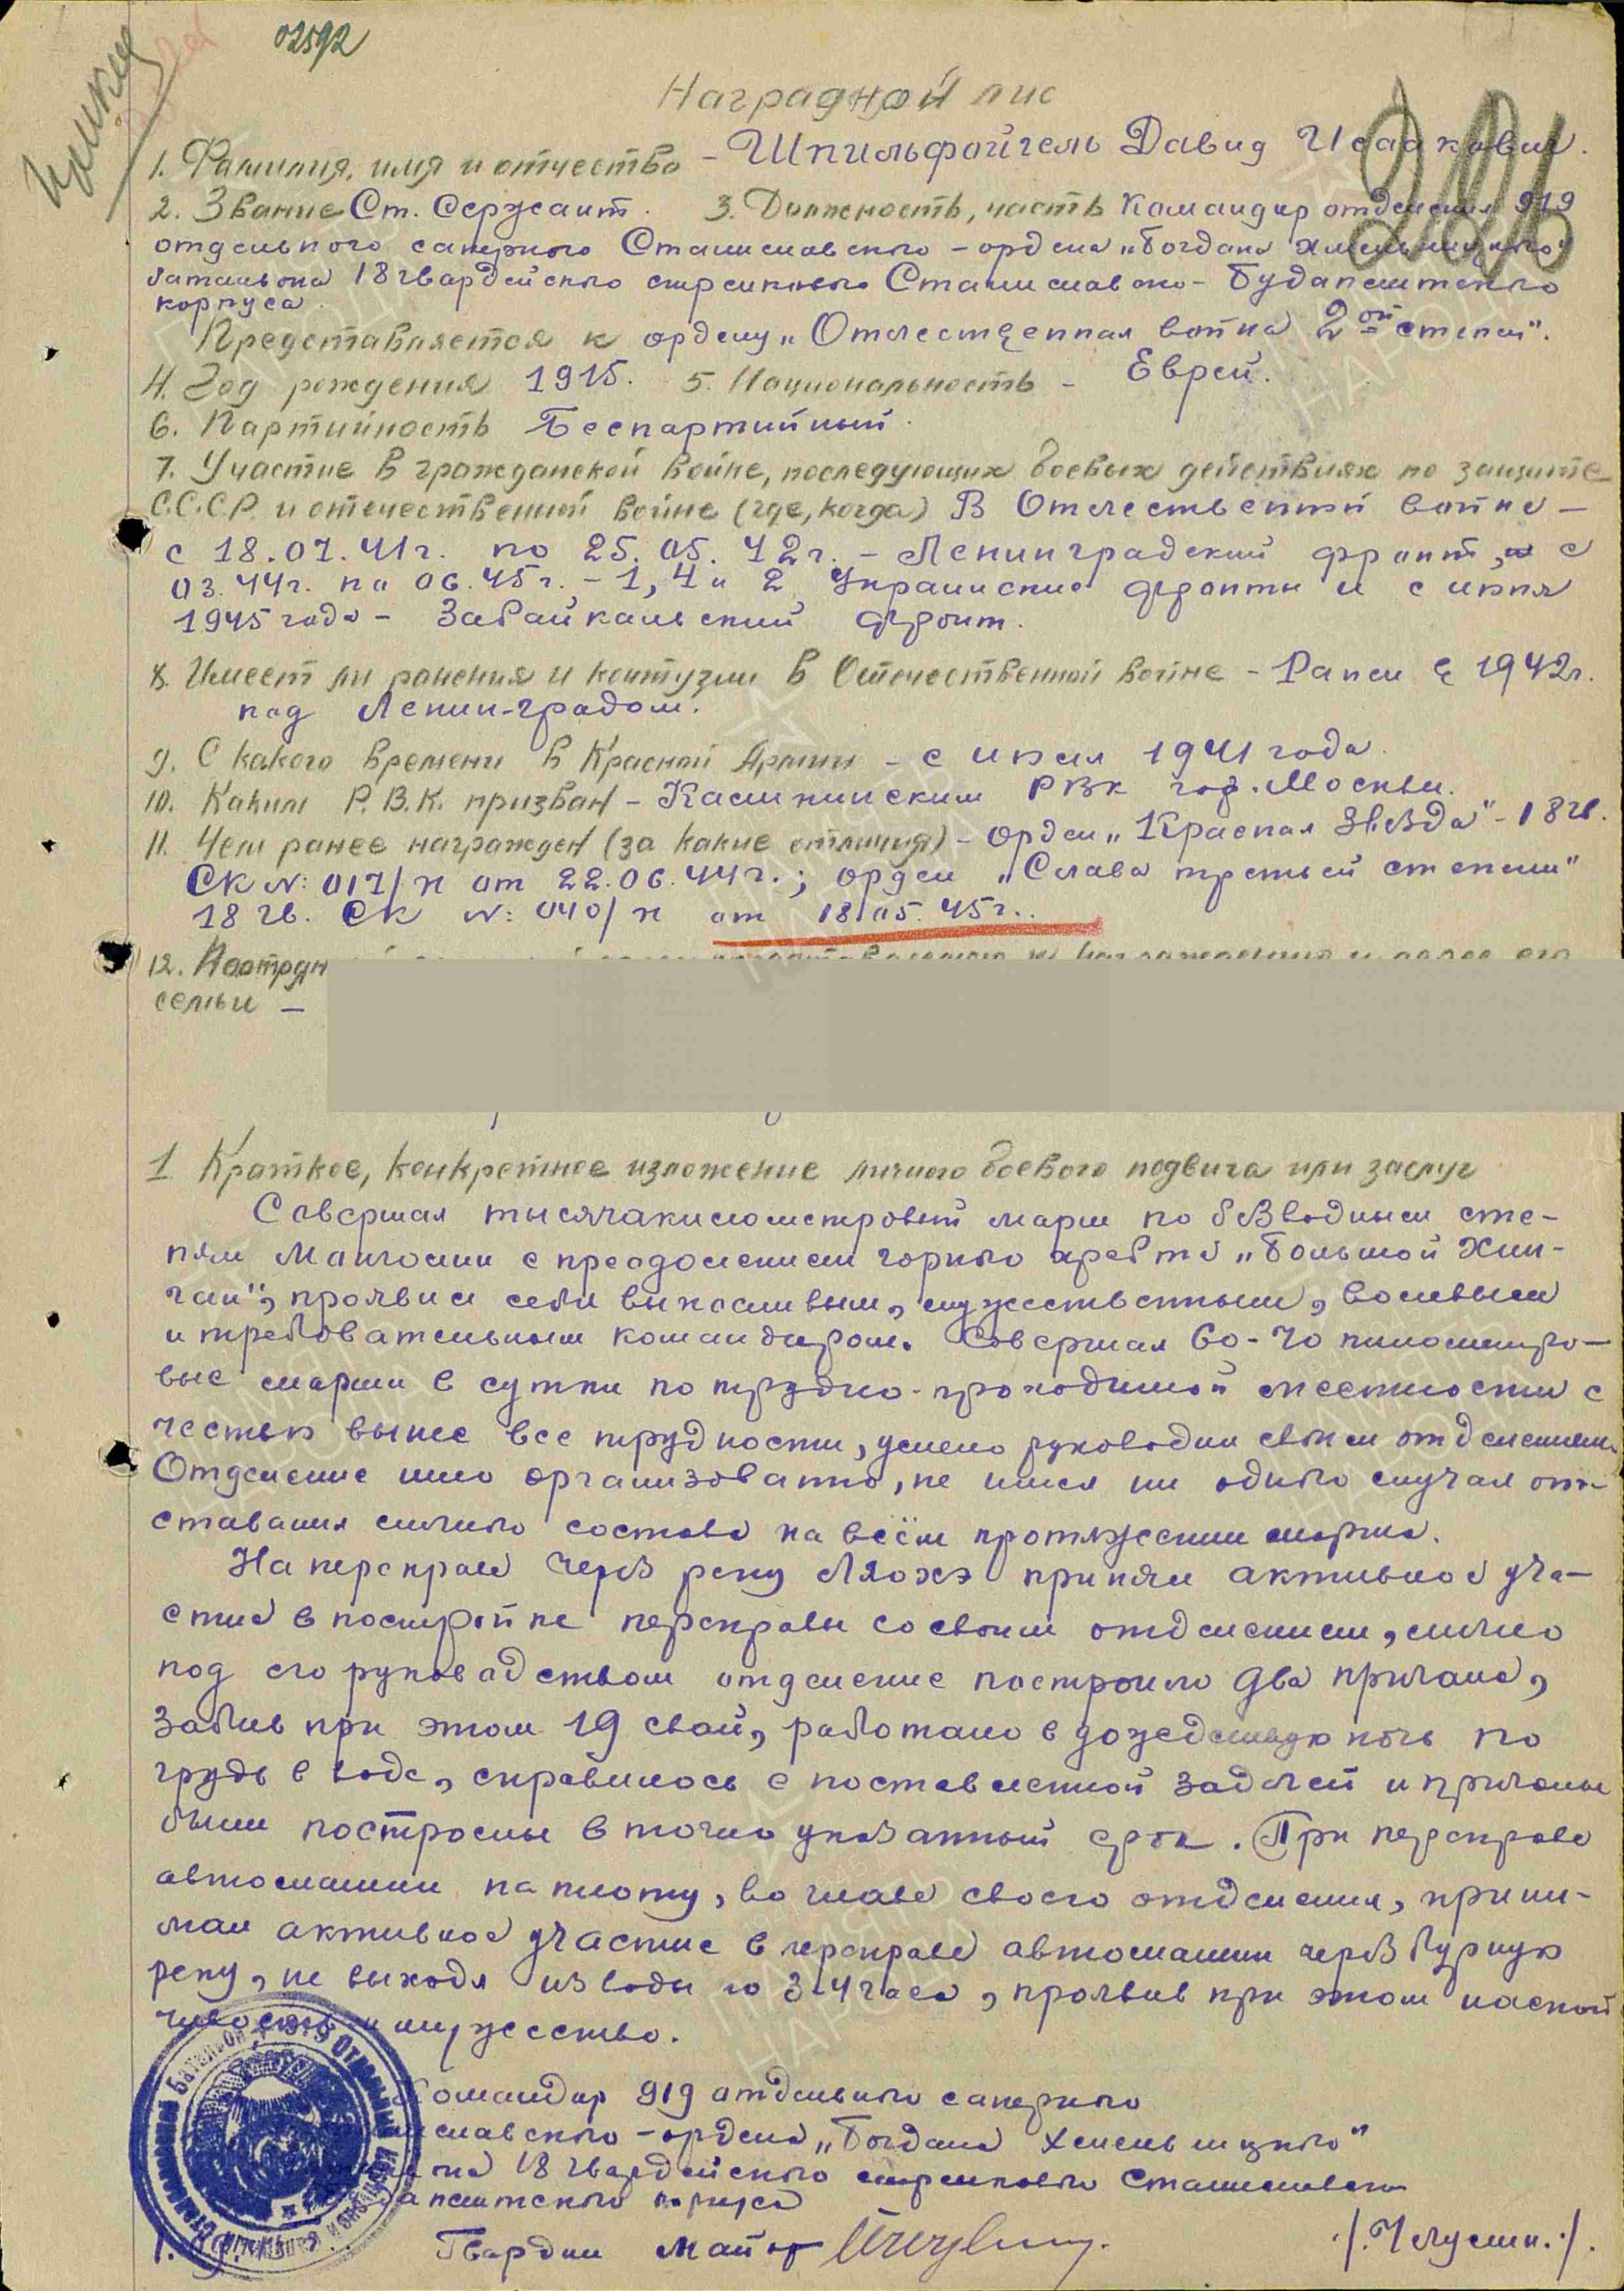 02592
286
Наградной лис
1. Фамилия, имя и отчество – Шпильфойгель Давид Исаакович.
2. Звание Ст. Сержант. 3. Должность, часть Командир отделения 919
отдельного саперного Станиславского – ордена „Богдана Хмельницкого"
батальона 18 гвардейского стрелкового Станиславско – Будапештского
корпуса.
Представляется к ордену „Отечественная война 2ой степени".
4. Год рождения 1915. 5. Национальность – Еврей.
6. Партийность Беспартийный.
7. Участие в гражданской войне, последующих боевых действиях по защите
С.С.С.Р. и отечественной войне (где, когда) В Отечественной войне –
с 18.07.41г. по 25.05.42г. – Ленинградский фронт, с
03.44г. по 06.45г. – 1, 4 и 2 Украинские фронты и с июля
1945 года – Забайкальский фронт.
8. Имеет ли ранения и контузии в Отечественной войне – Ранен в 1942г.
под Ленин-градом.
9. С какого времени в Красной Армии – с июля 1941 года.
10. Каким Р.В.К. призван – Калининским РВК гор. Москвы.
11. Чем ранее награжден (за какие отличия) – орден „Красная Звезда" – 18 гв.
СК №: 017/н от 22.06.44г.; орден „Слава третьей степени"
18 гв. СК №: 040/н от 18.05.45г..
12.
семьи –
1 Краткое, конкретное изложение личного боевого подвига или заслуг
Совершая тысячакилометровый марш по безводным сте-
пям Манголии с преодолением горного хребта „Большой Хин-
ган", проявил себя выносливым, мужественным, волевым
и требовательным командиром. Совершая 60-70 километро-
вые марши в сутки по трудно-проходимой местности с
честью вынес все трудности, умело руководил своим отделением.
Отделение шло организованно, не имел ни одного случая от-
ставания личного состава на всём протяжении марша.
На переправе через реку Ляохэ принял активное уча-
стие в постройке переправы со своим отделением, лично
под его руководством отделение построило два причала,
забив при этом 19 свай, работало в дождливую ночь по
грудь в воде, справилось с поставленной задачей и причалы
были построены в точно указанный срок. При переправе
автомашин на плоту, во главе своего отделения, прини-
мал активное участие в переправе автомашин через бурную
реку, не выходя из воды по 3-4 часа, проявив при этом настой
чивость и мужество.
Командир 919 отдельного саперного
славского – ордена „Богдана Хмельницкого"
она 18 гвардейского стрелкового Станиславско
дапештского корпуса
Гвардии майор /. Челушк./.